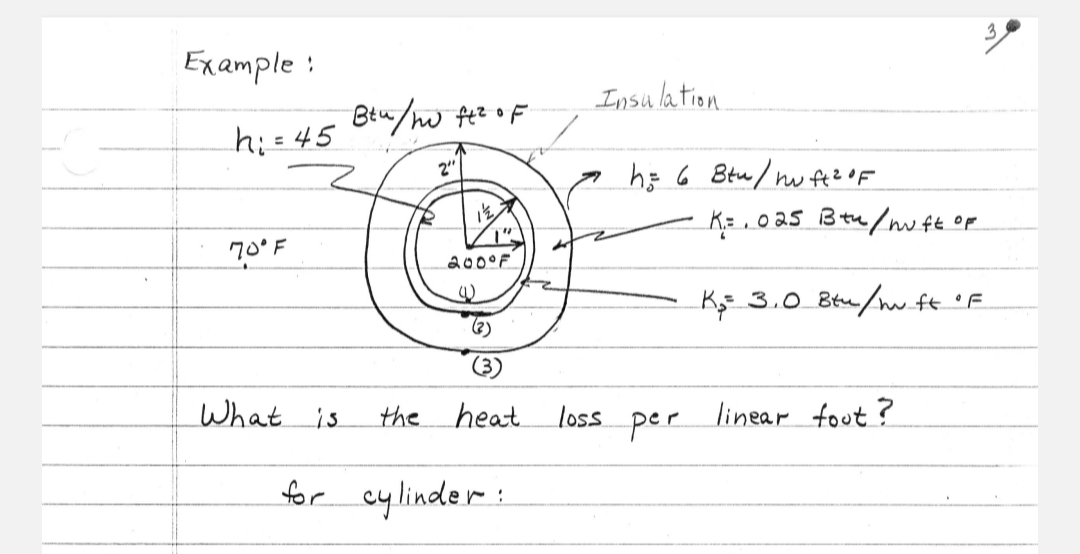 3
Example :
hᵢ = 45 Btu/hr ft² °F
Insulation
2"
h₀= 6 Btu/hr ft² °F
1½
1"
Kᵢ= .025 Btu/hr ft °F
70° F
200°F
(1)
Kₚ= 3.0 Btu/hr ft °F
(2)
(3)
What is the heat loss per linear foot?
for cylinder :